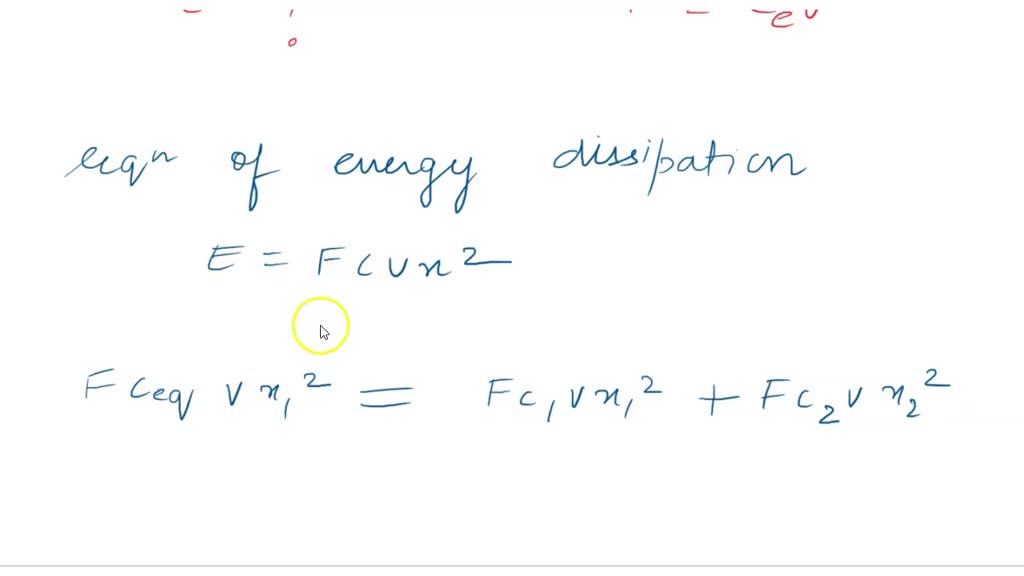 eqⁿ of energy dissipation
E = F C V x²
F Ceq V x₁² = F C₁ V x₁² + F C₂ V x₂²